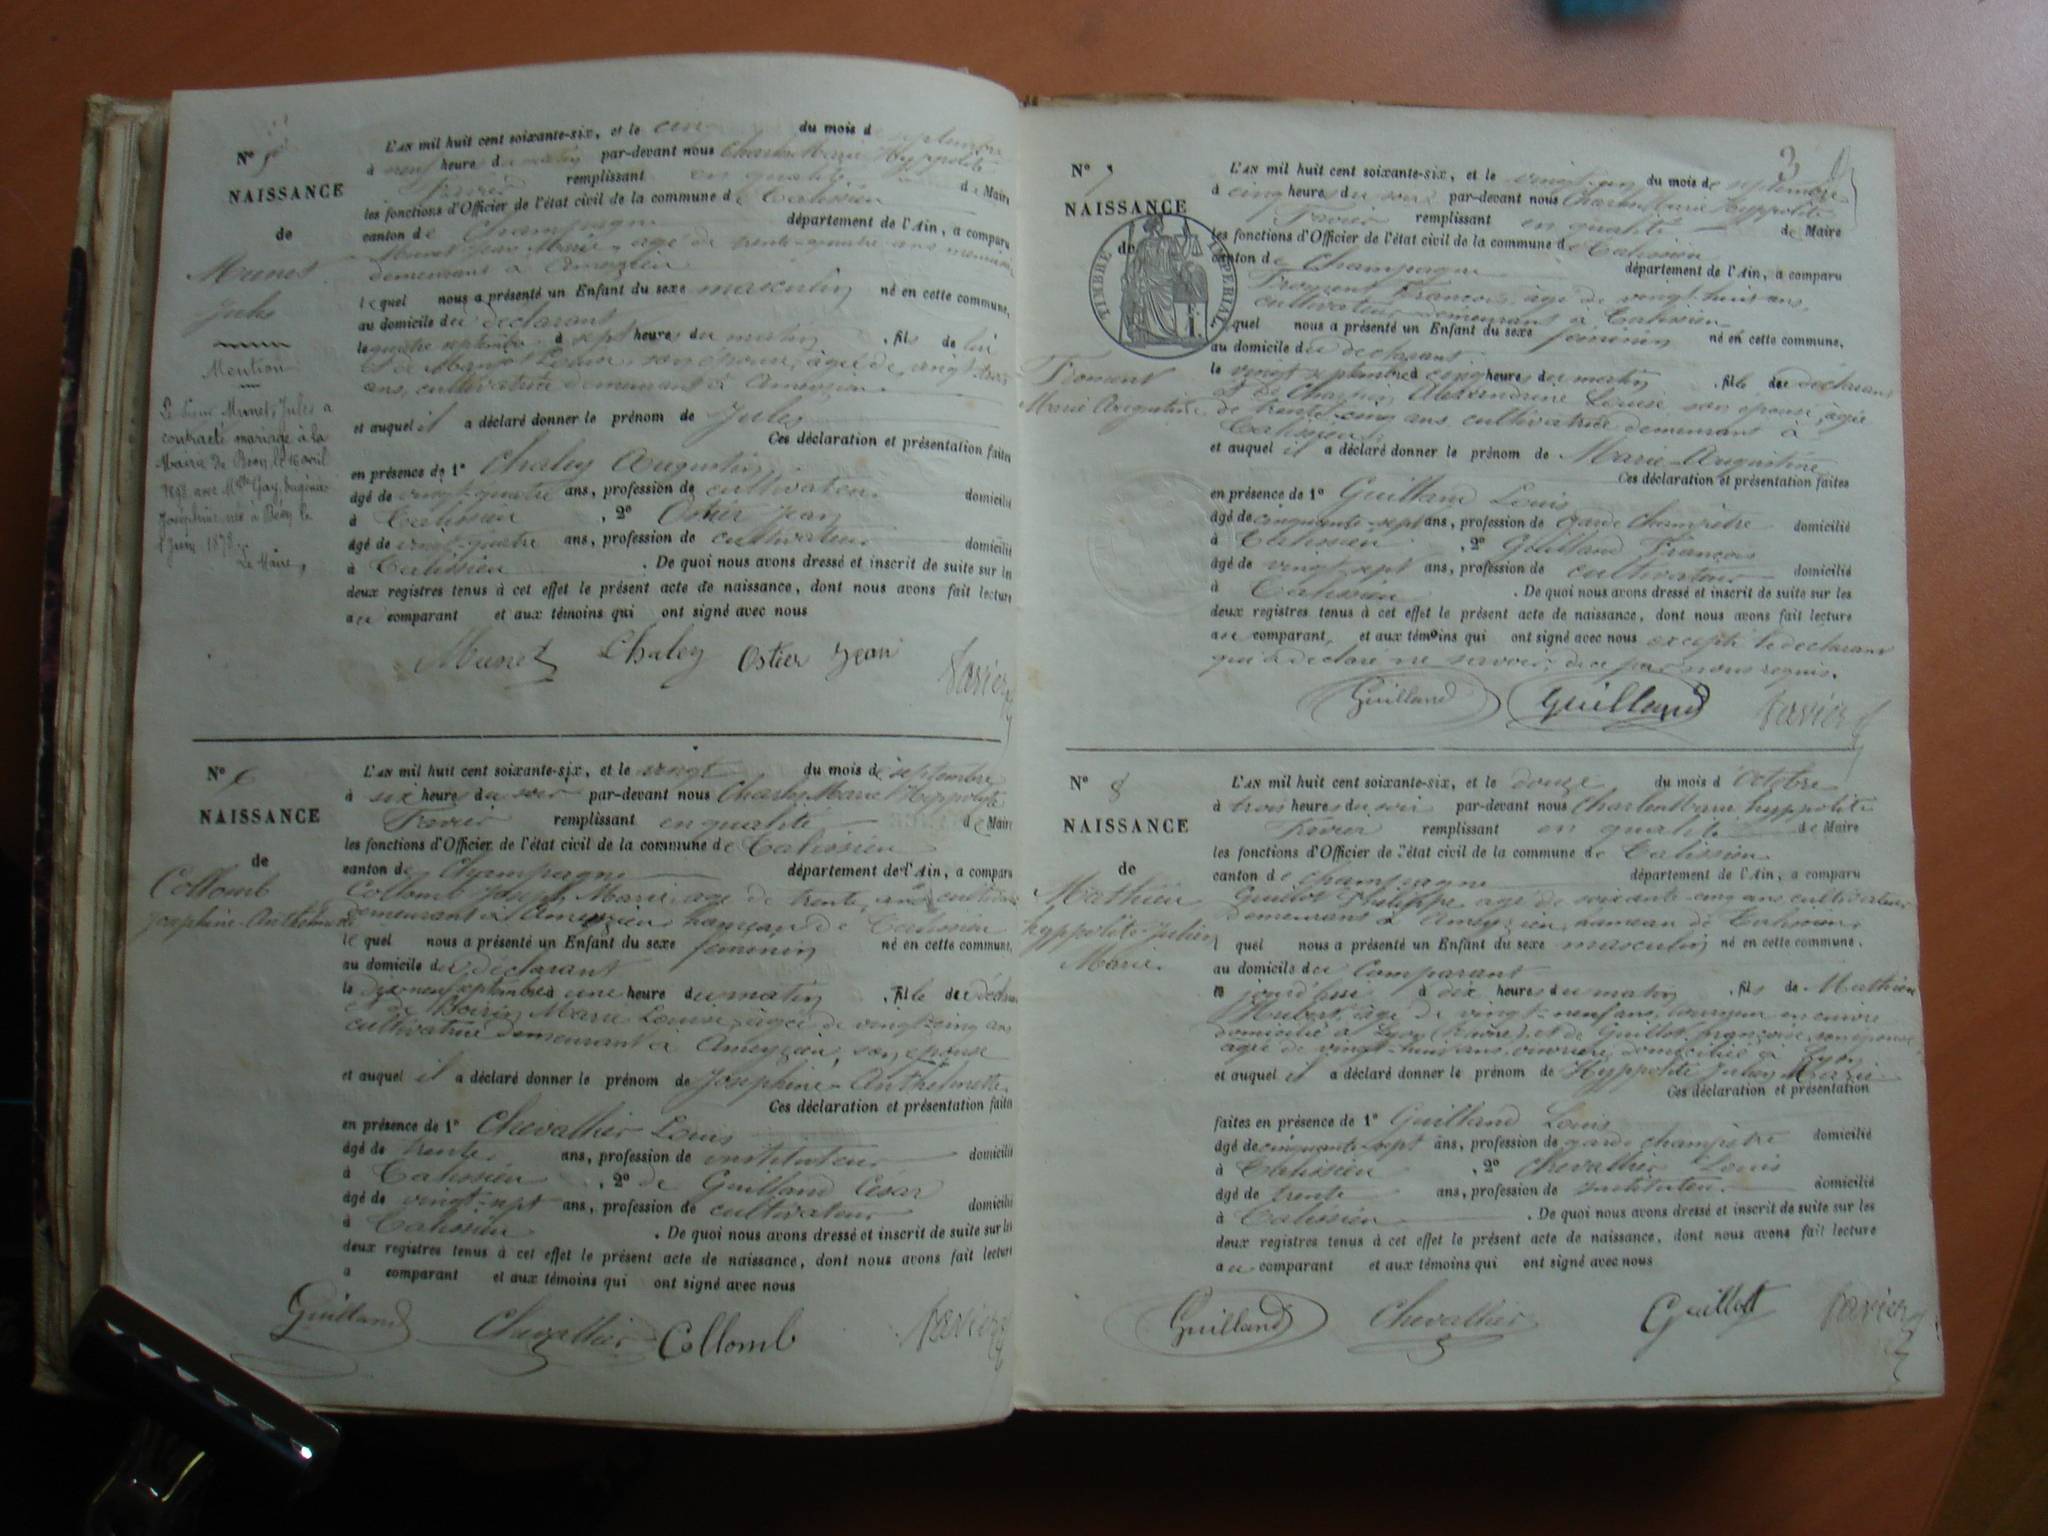 N° 5
NAISSANCE
de
Munet
Jules
Mention
Le Sieur Munet, Jules a
contracté mariage à la
Mairie de Béon le 16 avril
1898 avec Mlle Gay, Eugénie
Joséphine née à Béon le
1 Juin 1878.
Le Maire,
L'AN mil huit cent soixante-six, et le cinq du mois de septembre
à neuf heures du matin par-devant nous Charles Marie Hyppolite
Favier remplissant en qualité de Maire
les fonctions d'Officier de l'état civil de la commune de Talissieu
canton de Champagne département de l'Ain, a comparu
Munet Jean Marie, âgé de trente-quatre ans
demeurant à Ameyzieu
lequel nous a présenté un Enfant du sexe masculin né en cette commune,
au domicile du déclarant
le quatre septembre à sept heures du matin, fils de lui
et de Louise son épouse, âgée de vingt trois
ans, cultivatrice demeurant à Ameyzieu
et auquel il a déclaré donner le prénom de Jules
Ces déclaration et présentation faites
en présence de 1° Chaley Augustin
âgé de vingt-quatre ans, profession de cultivateur domicilié
à Talissieu, 2° Ostier Jean
âgé de vingt-quatre ans, profession de cultivateur domicilié
à Talissieu. De quoi nous avons dressé et inscrit de suite sur les
deux registres tenus à cet effet le présent acte de naissance, dont nous avons fait lecture
au comparant et aux témoins qui ont signé avec nous
Munet Chaley Ostier Jean Favier
N° 6
NAISSANCE
de
Collomb
Joséphine-Anthelmette
L'AN mil huit cent soixante-six, et le vingt du mois de septembre
à six heures du soir par-devant nous Charles Marie Hyppolite
Favier remplissant en qualité de Maire
les fonctions d'Officier de l'état civil de la commune de Talissieu
canton de Champagne département de l'Ain, a comparu
Collomb Joseph Marie âgé de trente ans cultivateur
demeurant à Ameyzieu hameau de Talissieu
lequel nous a présenté un Enfant du sexe féminin né en cette commune,
au domicile du déclarant
le dix-neuf septembre à une heure du matin, fille du déclarant
et de Marie Louise, âgée de vingt-cinq ans
cultivatrice demeurant à Ameyzieu, son épouse
et auquel il a déclaré donner le prénom de Joséphine-Anthelmette
Ces déclaration et présentation faites
en présence de 1° Chevallier Louis
âgé de trente ans, profession de instituteur domicilié
à Talissieu, 2° de Guilland César
âgé de vingt-sept ans, profession de cultivateur domicilié
à Talissieu. De quoi nous avons dressé et inscrit de suite sur les
deux registres tenus à cet effet le présent acte de naissance, dont nous avons fait lecture
a comparant et aux témoins qui ont signé avec nous
Guilland Chevallier Collomb Favier
3
N° 7
NAISSANCE
de
TIMBRE IMPERIAL
Froment
Marie Augustine
L'AN mil huit cent soixante-six, et le vingt-un du mois de septembre
à cinq heures du soir par-devant nous Charles Marie Hyppolite
Favier remplissant en qualité de Maire
les fonctions d'Officier de l'état civil de la commune de Talissieu
canton de Champagne département de l'Ain, a comparu
Froment François, âgé de vingt-huit ans,
cultivateur demeurant à Talissieu
lequel nous a présenté un Enfant du sexe féminin né en cette commune,
au domicile du déclarant
le vingt septembre à cinq heures du matin, fille du déclarant
et de Alexandrine Louise son épouse, âgée
de trente-cinq ans cultivatrice demeurant à
Talissieu
et auquel il a déclaré donner le prénom de Marie-Augustine
Ces déclaration et présentation faites
en présence de 1° Guilland Louis
âgé de cinquante-sept ans, profession de garde champêtre domicilié
à Talissieu, 2° Guilland François
âgé de vingt-sept ans, profession de cultivateur domicilié
à Talissieu. De quoi nous avons dressé et inscrit de suite sur les
deux registres tenus à cet effet le présent acte de naissance, dont nous avons fait lecture
au comparant, et aux témoins qui ont signé avec nous excepté le déclarant
qui a déclaré ne savoir, de ce par nous requis.
Guilland Guilland Favier
N° 8
NAISSANCE
de
Mathieu
hyppolite-Julien
Marie.
L'AN mil huit cent soixante-six, et le douze du mois d'Octobre
à trois heures du soir par-devant nous Charles Marie hyppolite
Favier remplissant en qualité de Maire
les fonctions d'Officier de l'état civil de la commune de Talissieu
canton de Champagne département de l'Ain, a comparu
Guillot Philippe âgé de soixante-cinq ans cultivateur
demeurant à Ameyzieu, hameau de Talissieu
l quel nous a présenté un Enfant du sexe masculin né en cette commune.
au domicile du Comparant
le jourd'hui à dix heures du matin, fils de Mathieu
Hubert, âgé de vingt-neuf ans, tourneur en cuivre
domicilié à Lyon (Rhône), et de Guillot françoise, son épouse
âgée de vingt-huit ans, ouvrière, domiciliée à Lyon
et auquel il a déclaré donner le prénom de Hyppolite Julien Marie
Ces déclaration et présentation
faites en présence de 1° Guilland Louis
âgé de cinquante-sept ans, profession de garde champêtre domicilié
à Talissieu, 2° Chevallier Louis
âgé de trente ans, profession de instituteur domicilié
à Talissieu. De quoi nous avons dressé et inscrit de suite sur les
deux registres tenus à cet effet le présent acte de naissance, dont nous avons fait lecture
au comparant et aux témoins qui ont signé avec nous
Guilland Chevallier Guillot Favier